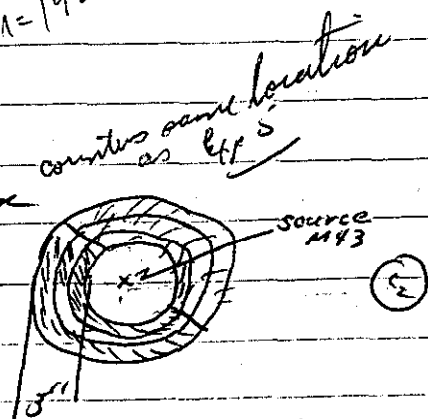 counters same location
as Exp 5
source
M43
C2
3"